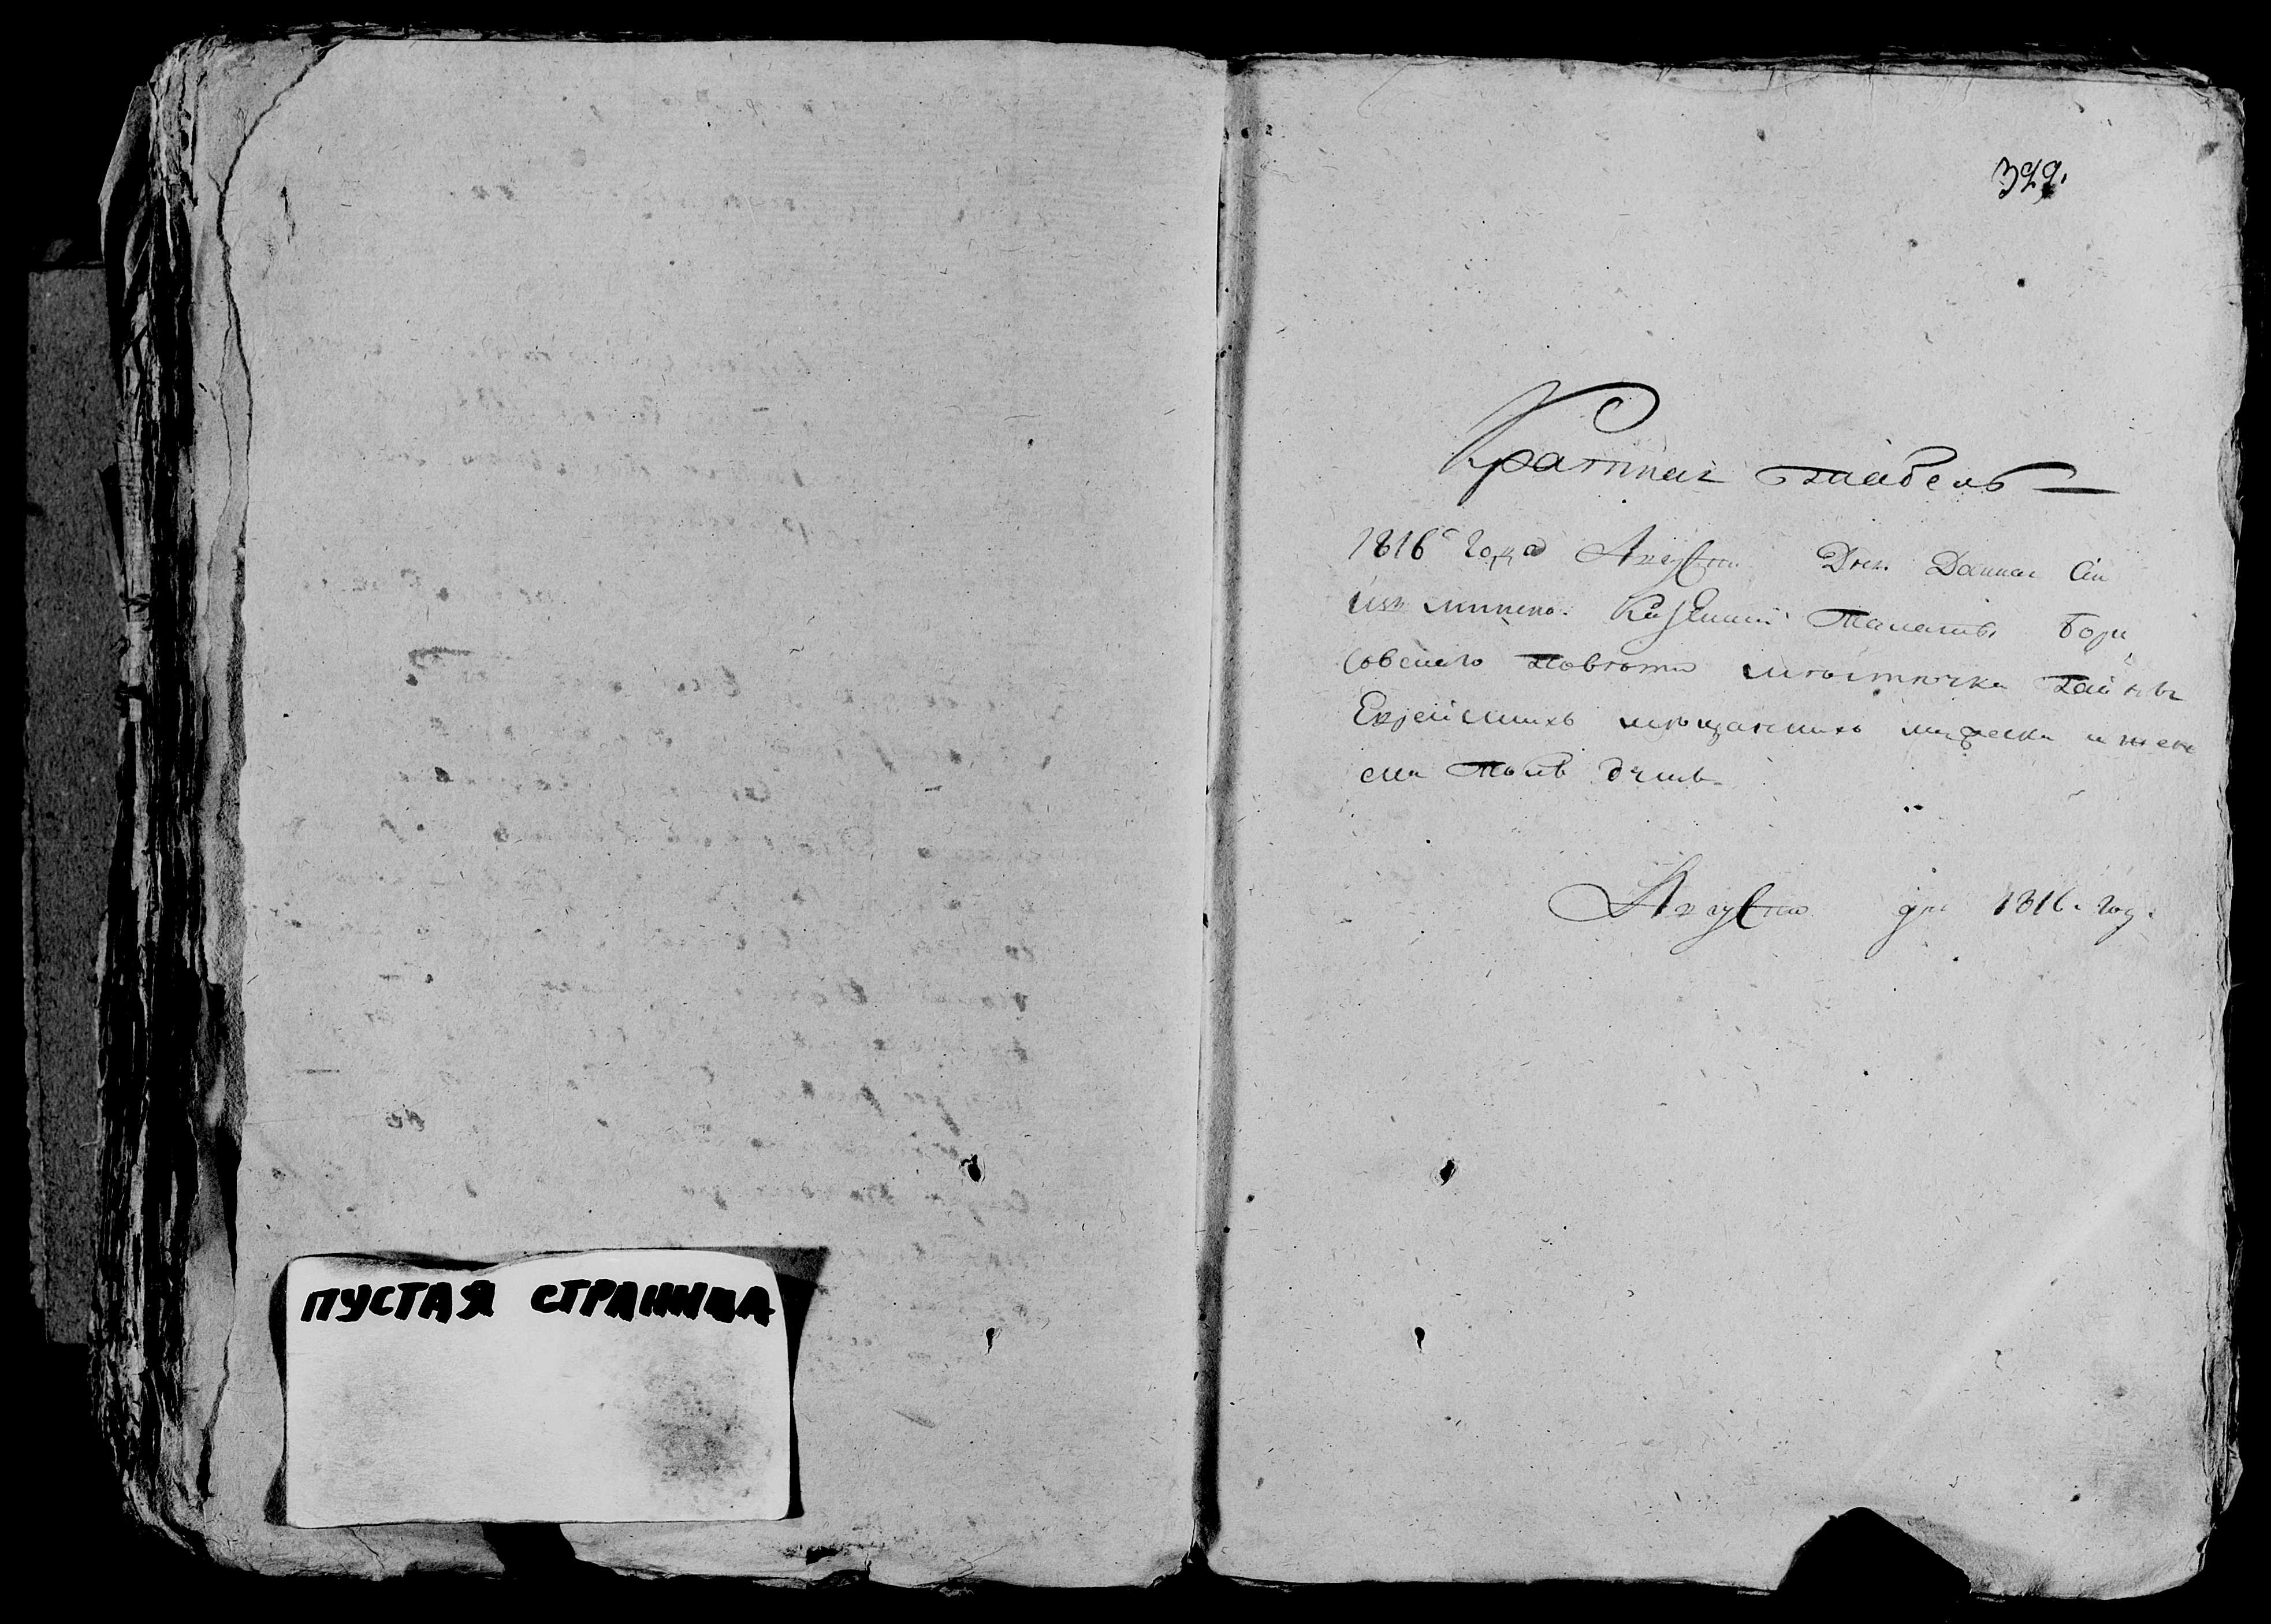 ПУСТАЯ СТРАНИЦА
399.
Краткая табель
1816 года Августа Дня Данная Сия
изъ минско. Казенной Палаты Бори
совского Повѣта мѣстечка Гайны
Еврейскихъ мѣщанскихъ мужеска и жен
ска полъ душъ
Августа дня 1816. год.